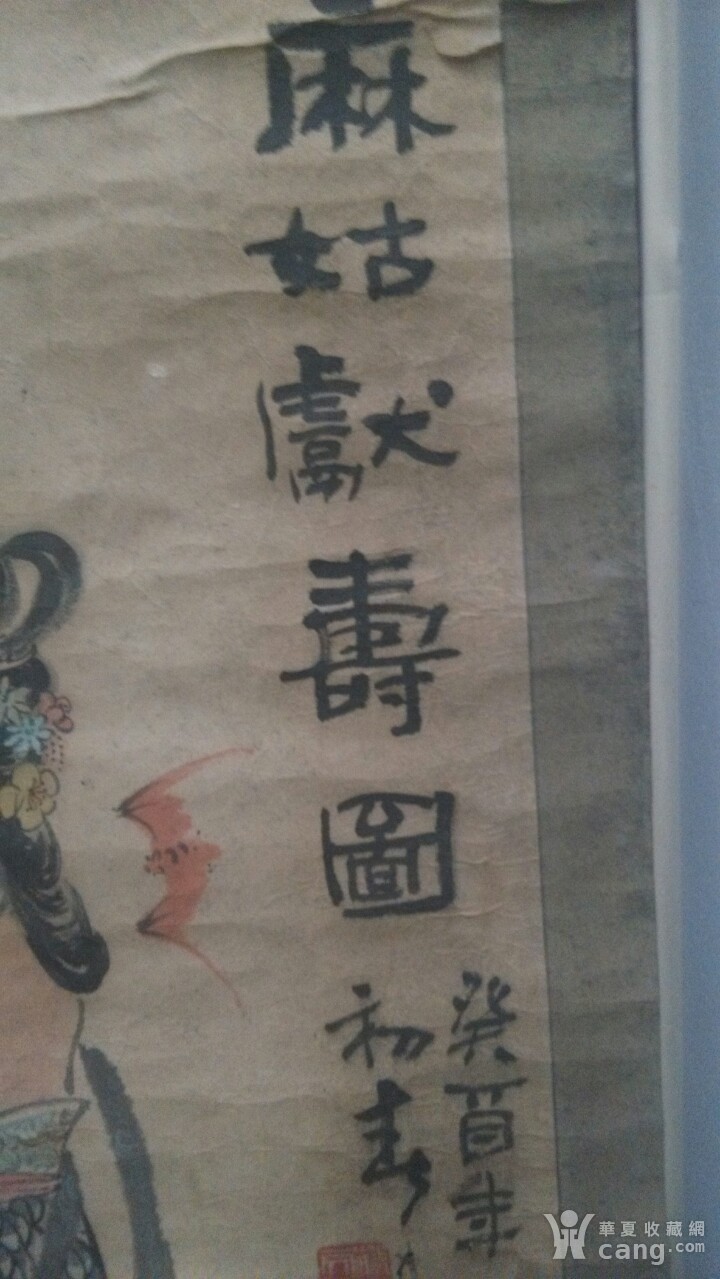 麻姑獻壽圖
癸酉年
初春
華夏收藏網
cang.com